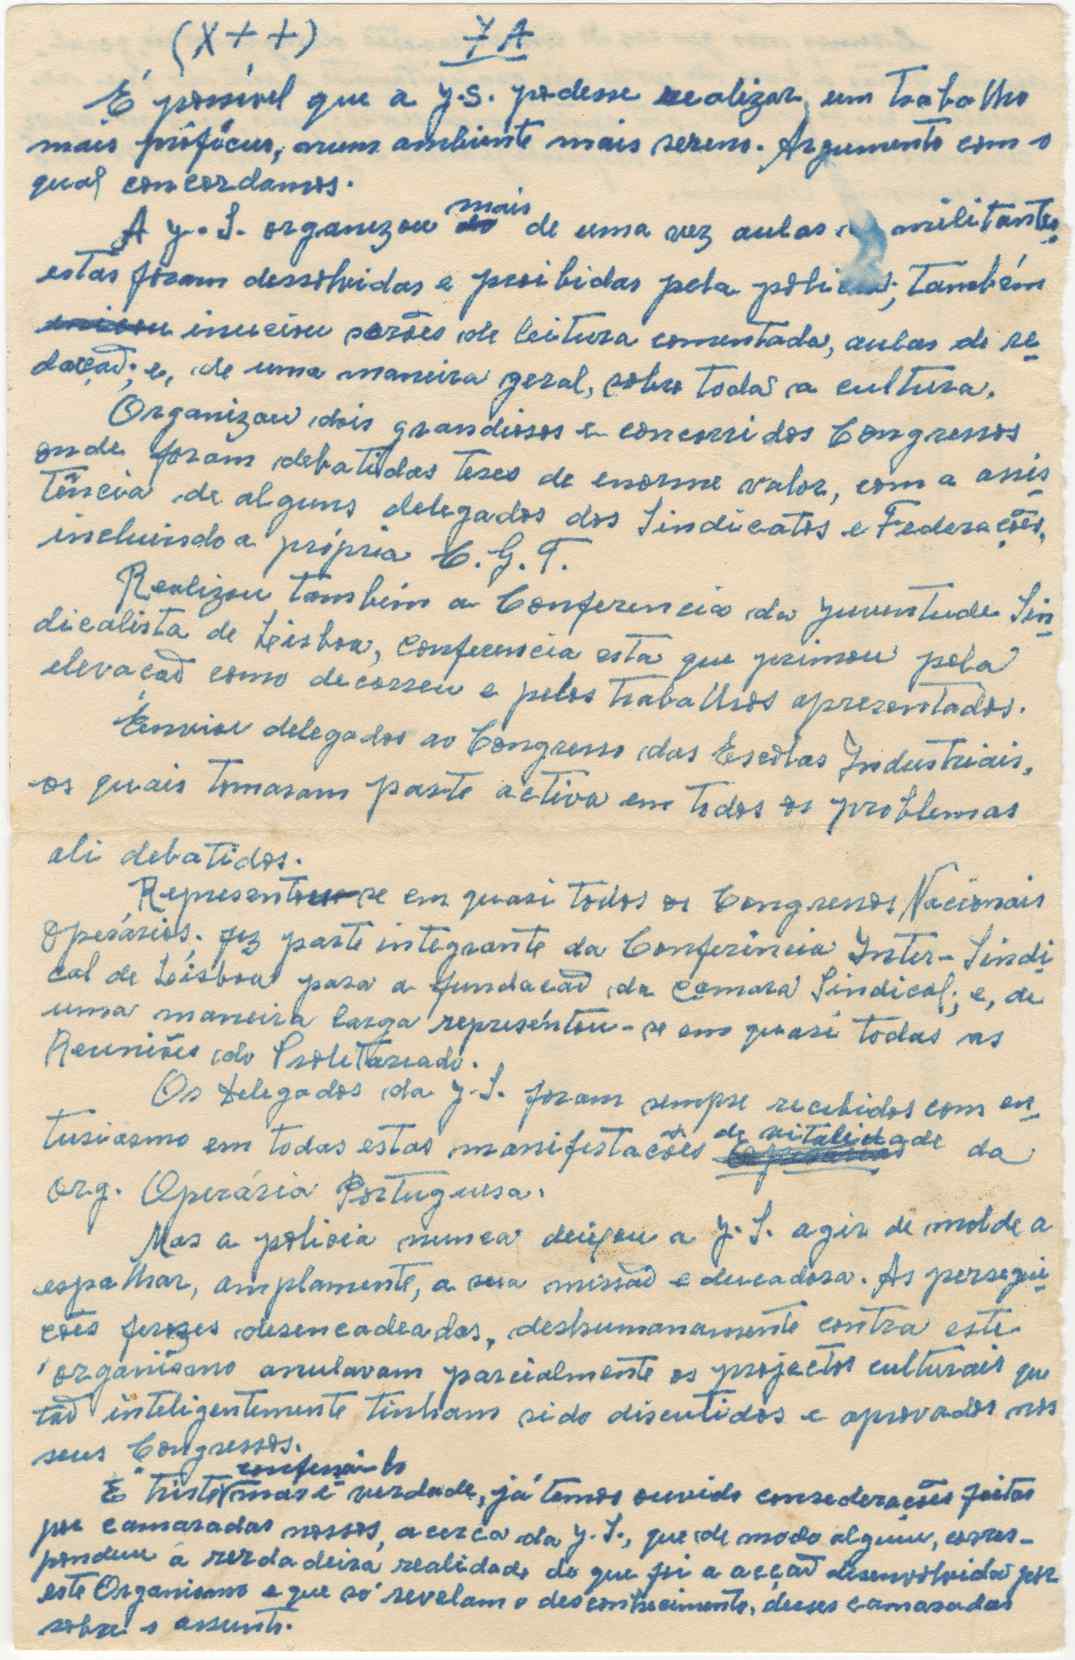 (X++) 7 A
É possivel que a J.S. podesse realizar, um trabalho
mais profícuo, num ambiente mais sereno. Argumento com o
qual concordamos.
A J.S. organizou mais de uma vez aulas militantes,
estas foram dessolvidas e proibidas pela policia; também
inicciou serões de leitura comentada, aulas de re-
dacção; e, de uma maneira geral, sobre toda a cultura.
Organizou dois grandiosos e concorridos Congressos
onde foram debatidas teses de enorme valor, com a assis-
tência de alguns delegados dos Sindicatos e Federações,
incluindo a própria C.G.T.
Realizou também a Conferencia da Juventude Sin-
dicalista de Lisboa, conferencia esta que primou pela
elevação como decorreu e pelos trabalhos apresentados.
Enviou delegados ao Congresso das Escolas Industriais,
os quais tomaram parte activa em todos os problemas
ali debatidos.
Representou-se em quasi todos os Congressos Nacionais
Operários. fez parte integrante da Conferência Inter-Sindi-
cal de Lisboa para a fundação da Camara Sindical; e, de
uma maneira larga representou-se em quasi todas as
Reuniões do Proletariado.
Os Delegados da J.S. foram sempre recebidos com en-
tusiasmo em todas estas manifestações de vitalidade da
org. Operária Portuguesa.
Mas a policia nunca deixou a J.S. agir de molde a
espalhar, amplamente, a sua missão educadora. As persegui-
ções ferozes desencadeadas, deshumanamente contra este
organismo anulavam parcialmente os projectos culturais que
tão inteligentemente tinham sido discutidos e aprovados nos
seus Congressos.
É triste confessá-lo mas é verdade, já temos ouvido considerações feitas
por camaradas nossos, acerca da J.S., que de modo algum, corres-
pondem á verdadeira realidade do que foi a acção disenvolvida por
este Organismo e que só revelam o desconhecimento, desses camaradas
sobre o assunto.